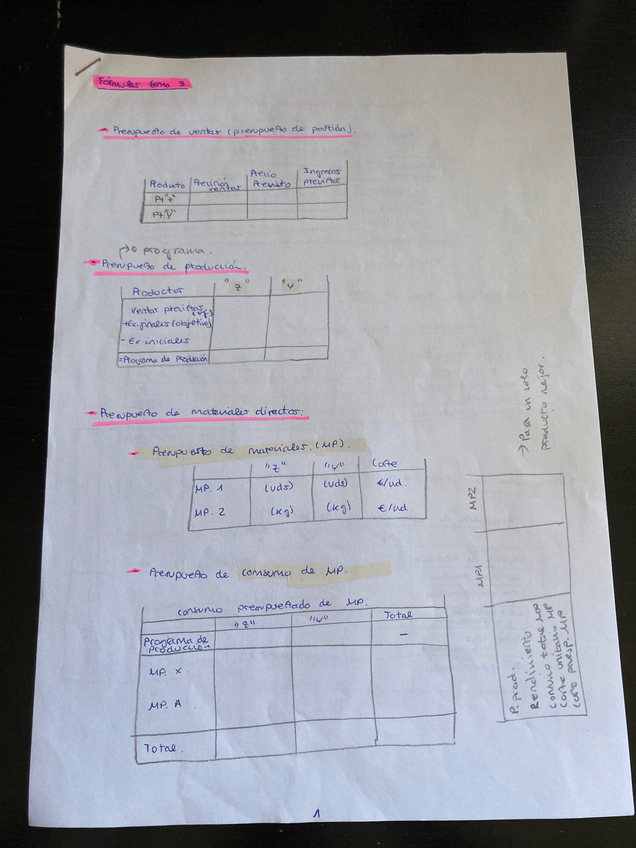 Fórmulas tema 3
Presupuesto de ventas (presupuesto de partida).
Producto Previsión ventas Precio Previsto Ingresos previstos
Pt."z"
Pt."y"
→ o programa.
Presupuesto de producción.
Productos "Z" "Y"
ventas previstas
+ Ex. finales (objetivo)
- Ex. iniciales
= Programa de Producción
Presupuesto de materiales directos:
Presupuesto de materiales. (MP).
"Z" "Y" Coste
MP. 1 (uds) (uds) €/ud.
MP. 2 (kg) (kg) €/ud.
Presupuesto de consumo de MP.
consumo presupuestado de MP.
"Z" "Y" Total
Programa de Producción –
MP. X
MP. A
Total.
→ Para un solo
producto mejor.
MP1 MP2
P. prod.
Rendimiento
Consumo total MP
Coste unitario MP
Coste presup. MP
1